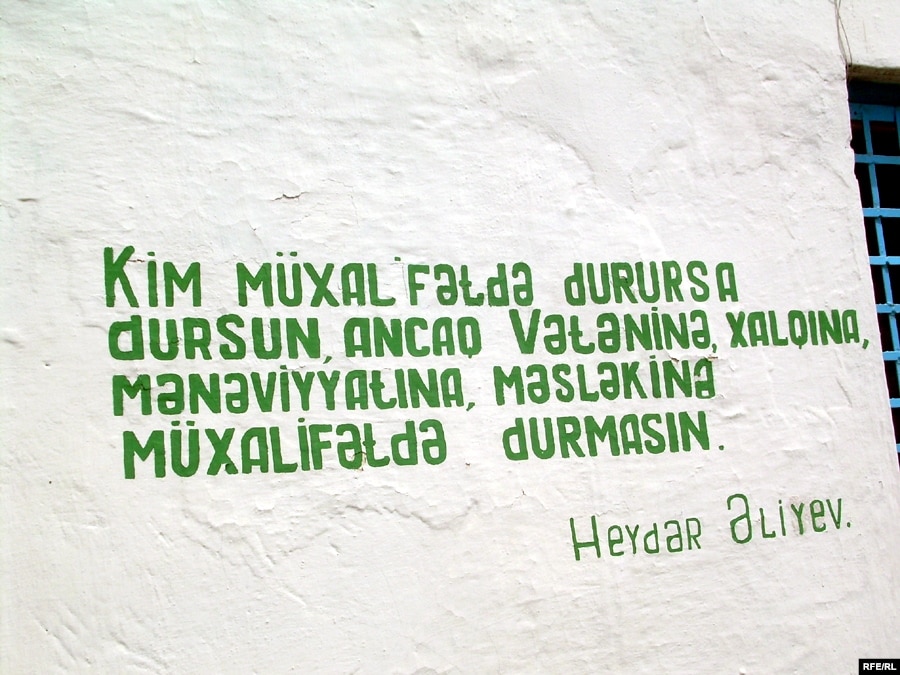 Kim müxalifətdə durursa
dursun, ancaq Vətəninə, xalqına,
mənəviyyatına, məsləkinə
müxalifətdə durmasın.
Heydər Əliyev.
RFE/RL